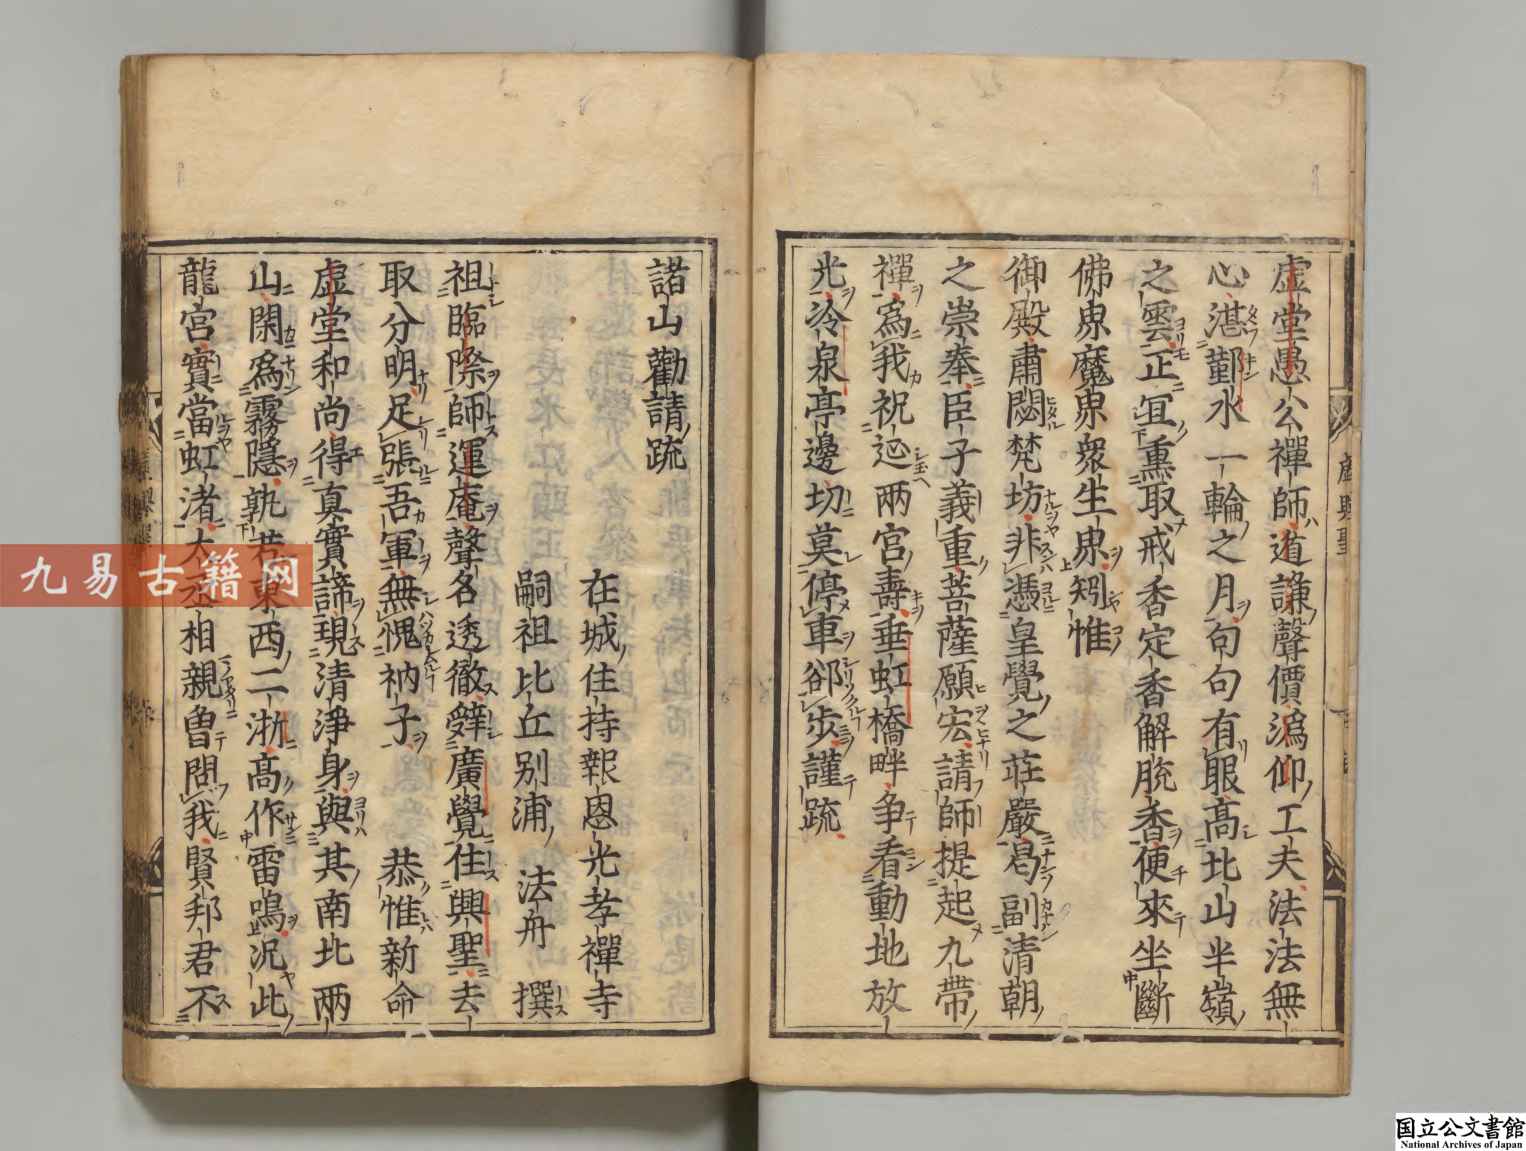 虛堂愚公禪師道謙聲價溈仰工夫法法無
心湛鄞水一輪之月句句有眼高北山半嶺
之雲正冝熏取戒香定香解脫香便來坐斷
佛界魔界衆生界矧惟
御殿肅閟梵坊非憑皇覺之莊嚴曷副清朝
之崇奉臣子義重菩薩願宏請師提起九帶
禪爲我祝延兩宮壽垂虹橋畔争看動地放
光冷泉亭邊切莫停車郤步謹疏
諸山勸請疏
在城住持報恩光孝禪寺
嗣祖比丘別浦法舟撰
祖臨際師運庵聲名透徹辭廣覺住興聖去
取分明足張吾軍無愧衲子恭惟新命
虛堂和尚得真實諦現清淨身與其南北兩
山閑爲霧隱孰若東西二浙高作雷鳴況此
龍宮實當虹渚大丞相親曽問我賢邦君不
虛興聖
九易古籍网
国立公文書館
National Archives of Japan